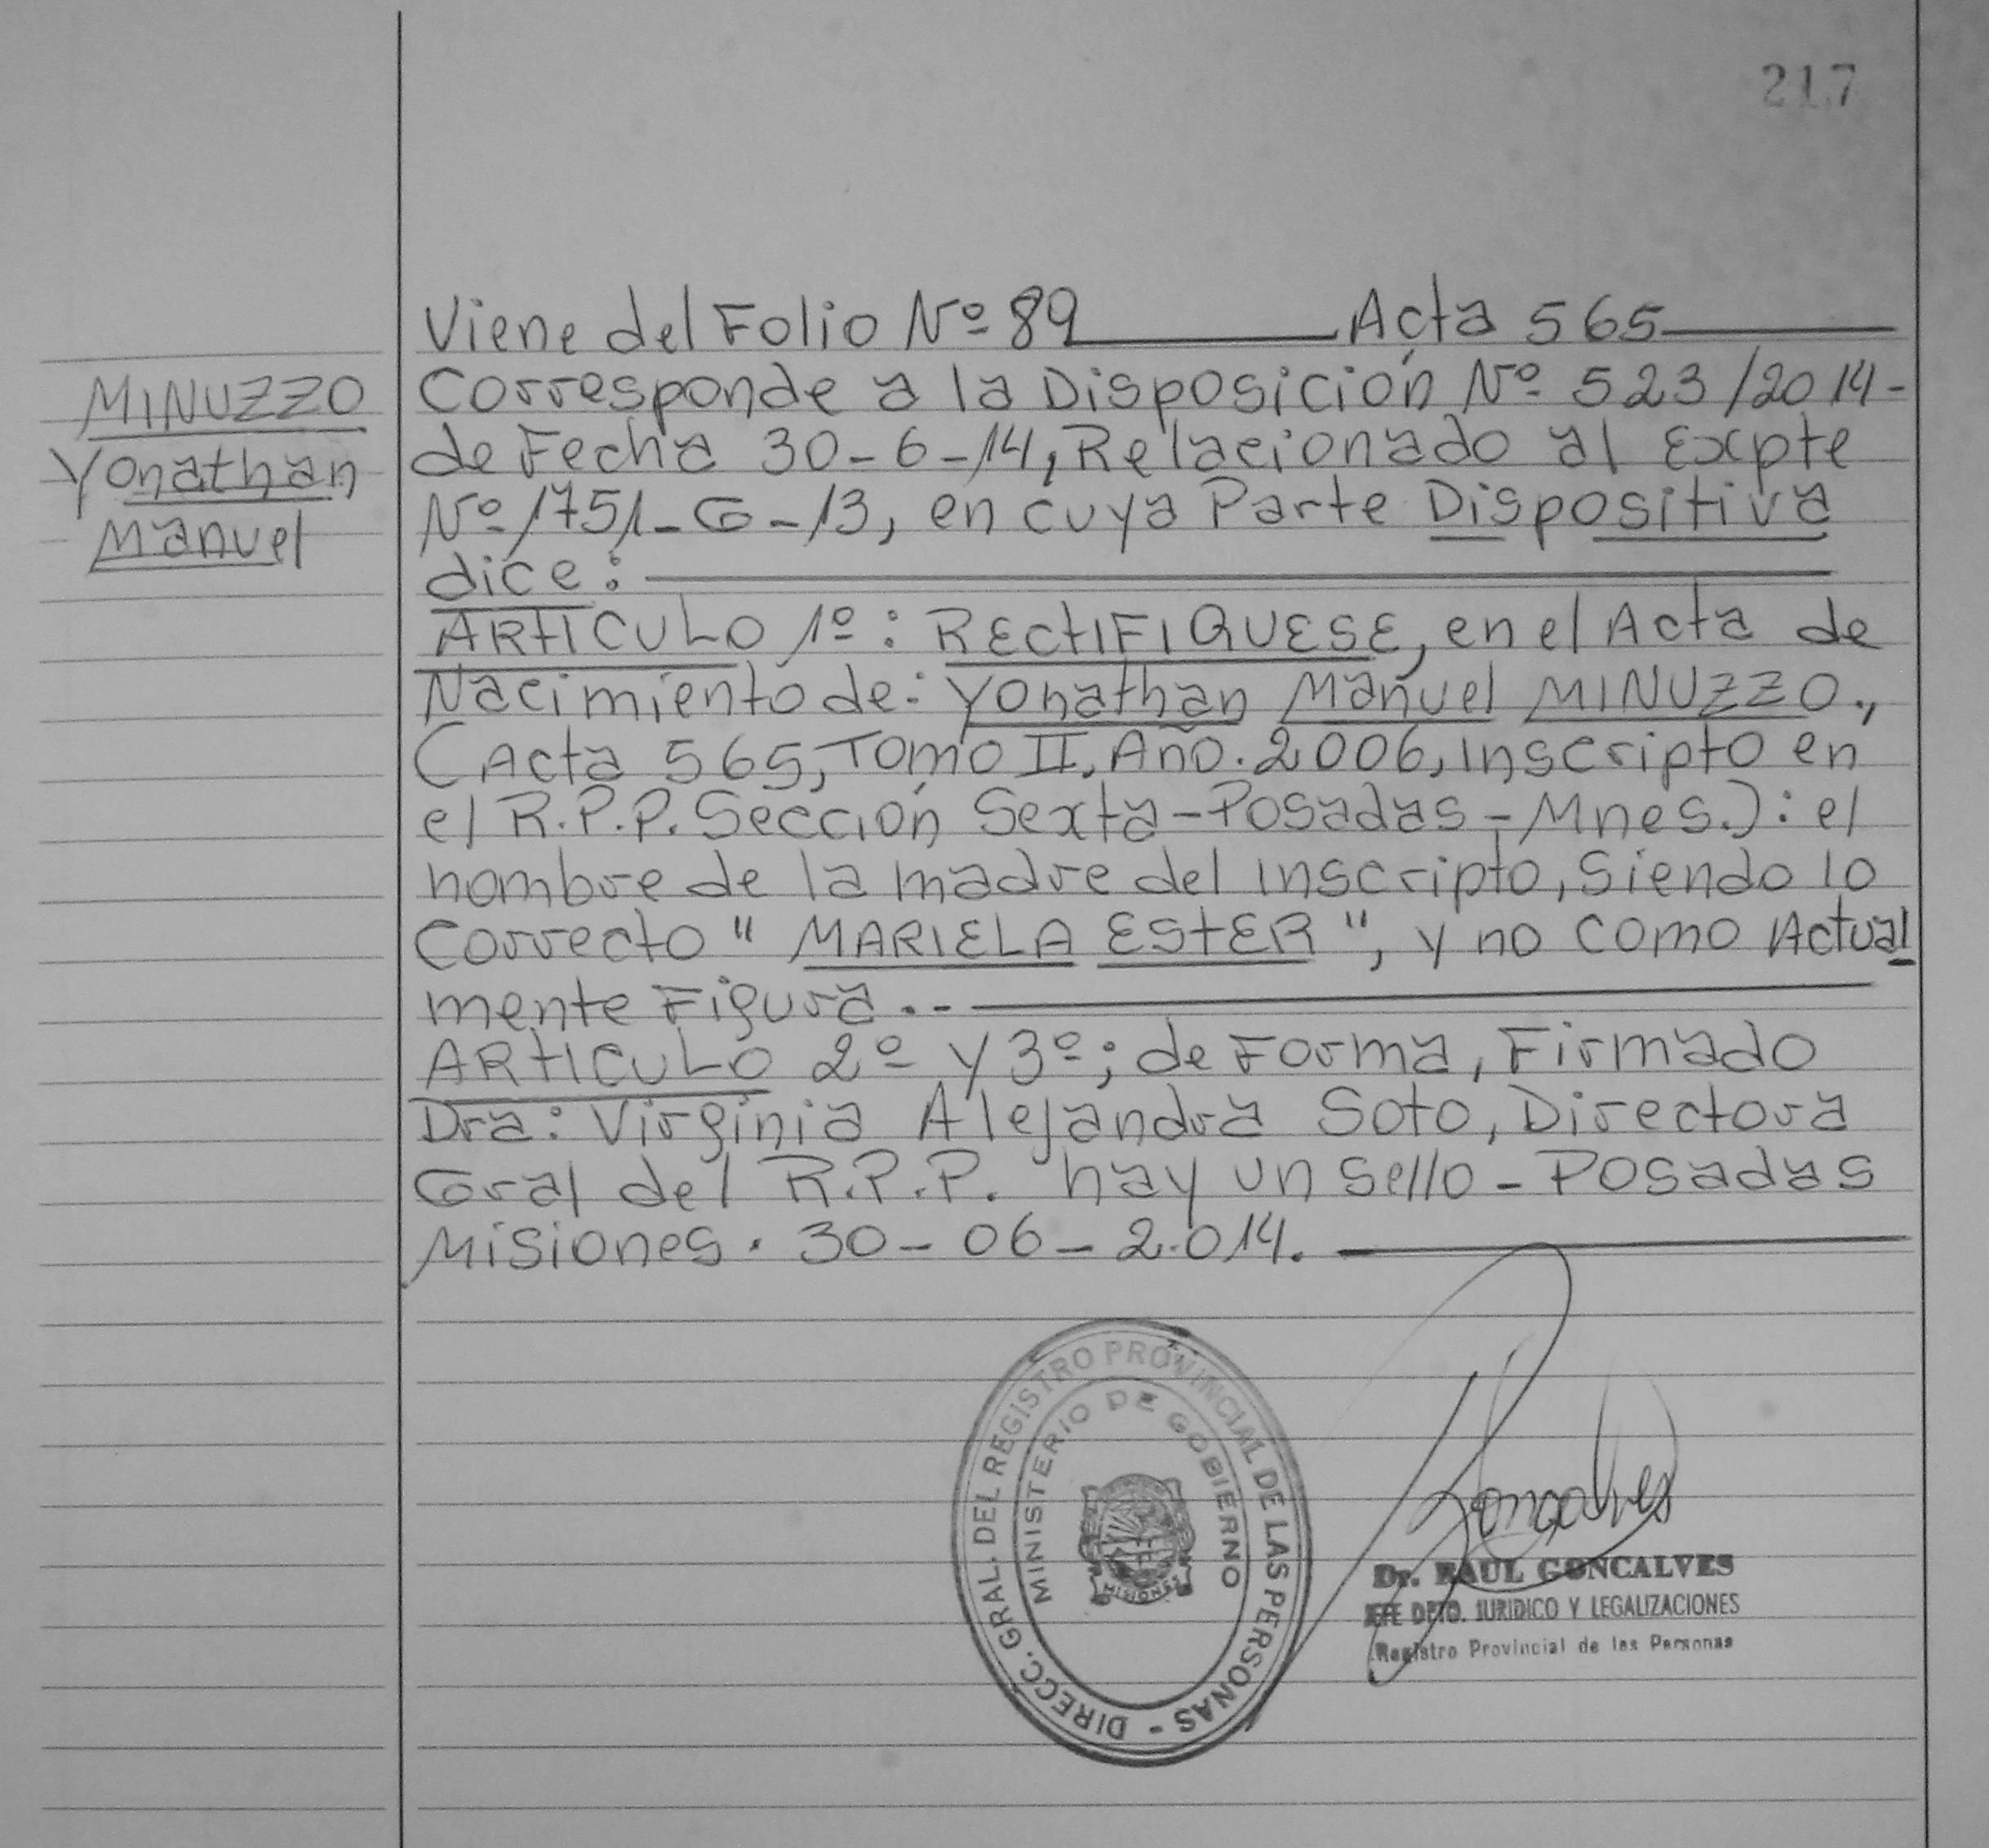 217
Viene del Folio Nº 89 Acta 565
MINUZZO
Yonathan
Manuel
Corresponde a la Disposición Nº 523/2014-
de Fecha 30-6-14, Relacionado al Expte
Nº 1751-G-13, en cuya Parte Dispositiva
dice:
ARTICULO 1º: RECTIFIQUESE, en el Acta de
Nacimiento de: Yonathan Manuel MINUZZO.,
(Acta 565, Tomo II, Año. 2006, Inscripto en
el R.P.P. Sección Sexta-Posadas-Mnes.): el
nombre de la madre del inscripto, siendo lo
Correcto " MARIELA ESTER ", y no como Actual
mente Figura..-
ARTICULO 2º y 3º; de Forma, Firmado
Dra: Virginia Alejandra Soto, Directora
Gral del R.P.P. hay un sello - Posadas
Misiones. 30-06-2.014.
DIRECC. GRAL. DEL REGISTRO PROVINCIAL DE LAS PERSONAS -
MINISTERIO DE GOBIERNO
MISIONES
Goncalves
Dr. RAUL GONCALVES
JEFE DPTO. JURIDICO Y LEGALIZACIONES
Registro Provincial de las Personas